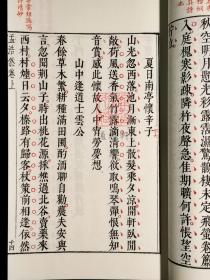 秋空明月懸光彩露霑濕驚鵲棲未定飛螢捲簾
入庭槐寒影疎隣杵夜聲急佳期曠何許悵望空
夏日南亭懷辛子
山光忽西落池月漸東上散髮乘夕涼開軒臥閒
敞荷風送香氣竹露滴清響欲取鳴琴彈恨無知
音賞感此懷故人中宵勞夢想
山中逢道士雲公
春餘草木繁耕種滿田園酌酒聊自勸農夫安與
言忽聞荊山子時出桃花源採樵過北谷賣藥來
西村村煙日云夕榛路有歸客杖策前相逢依然
孟浩然卷上
十四